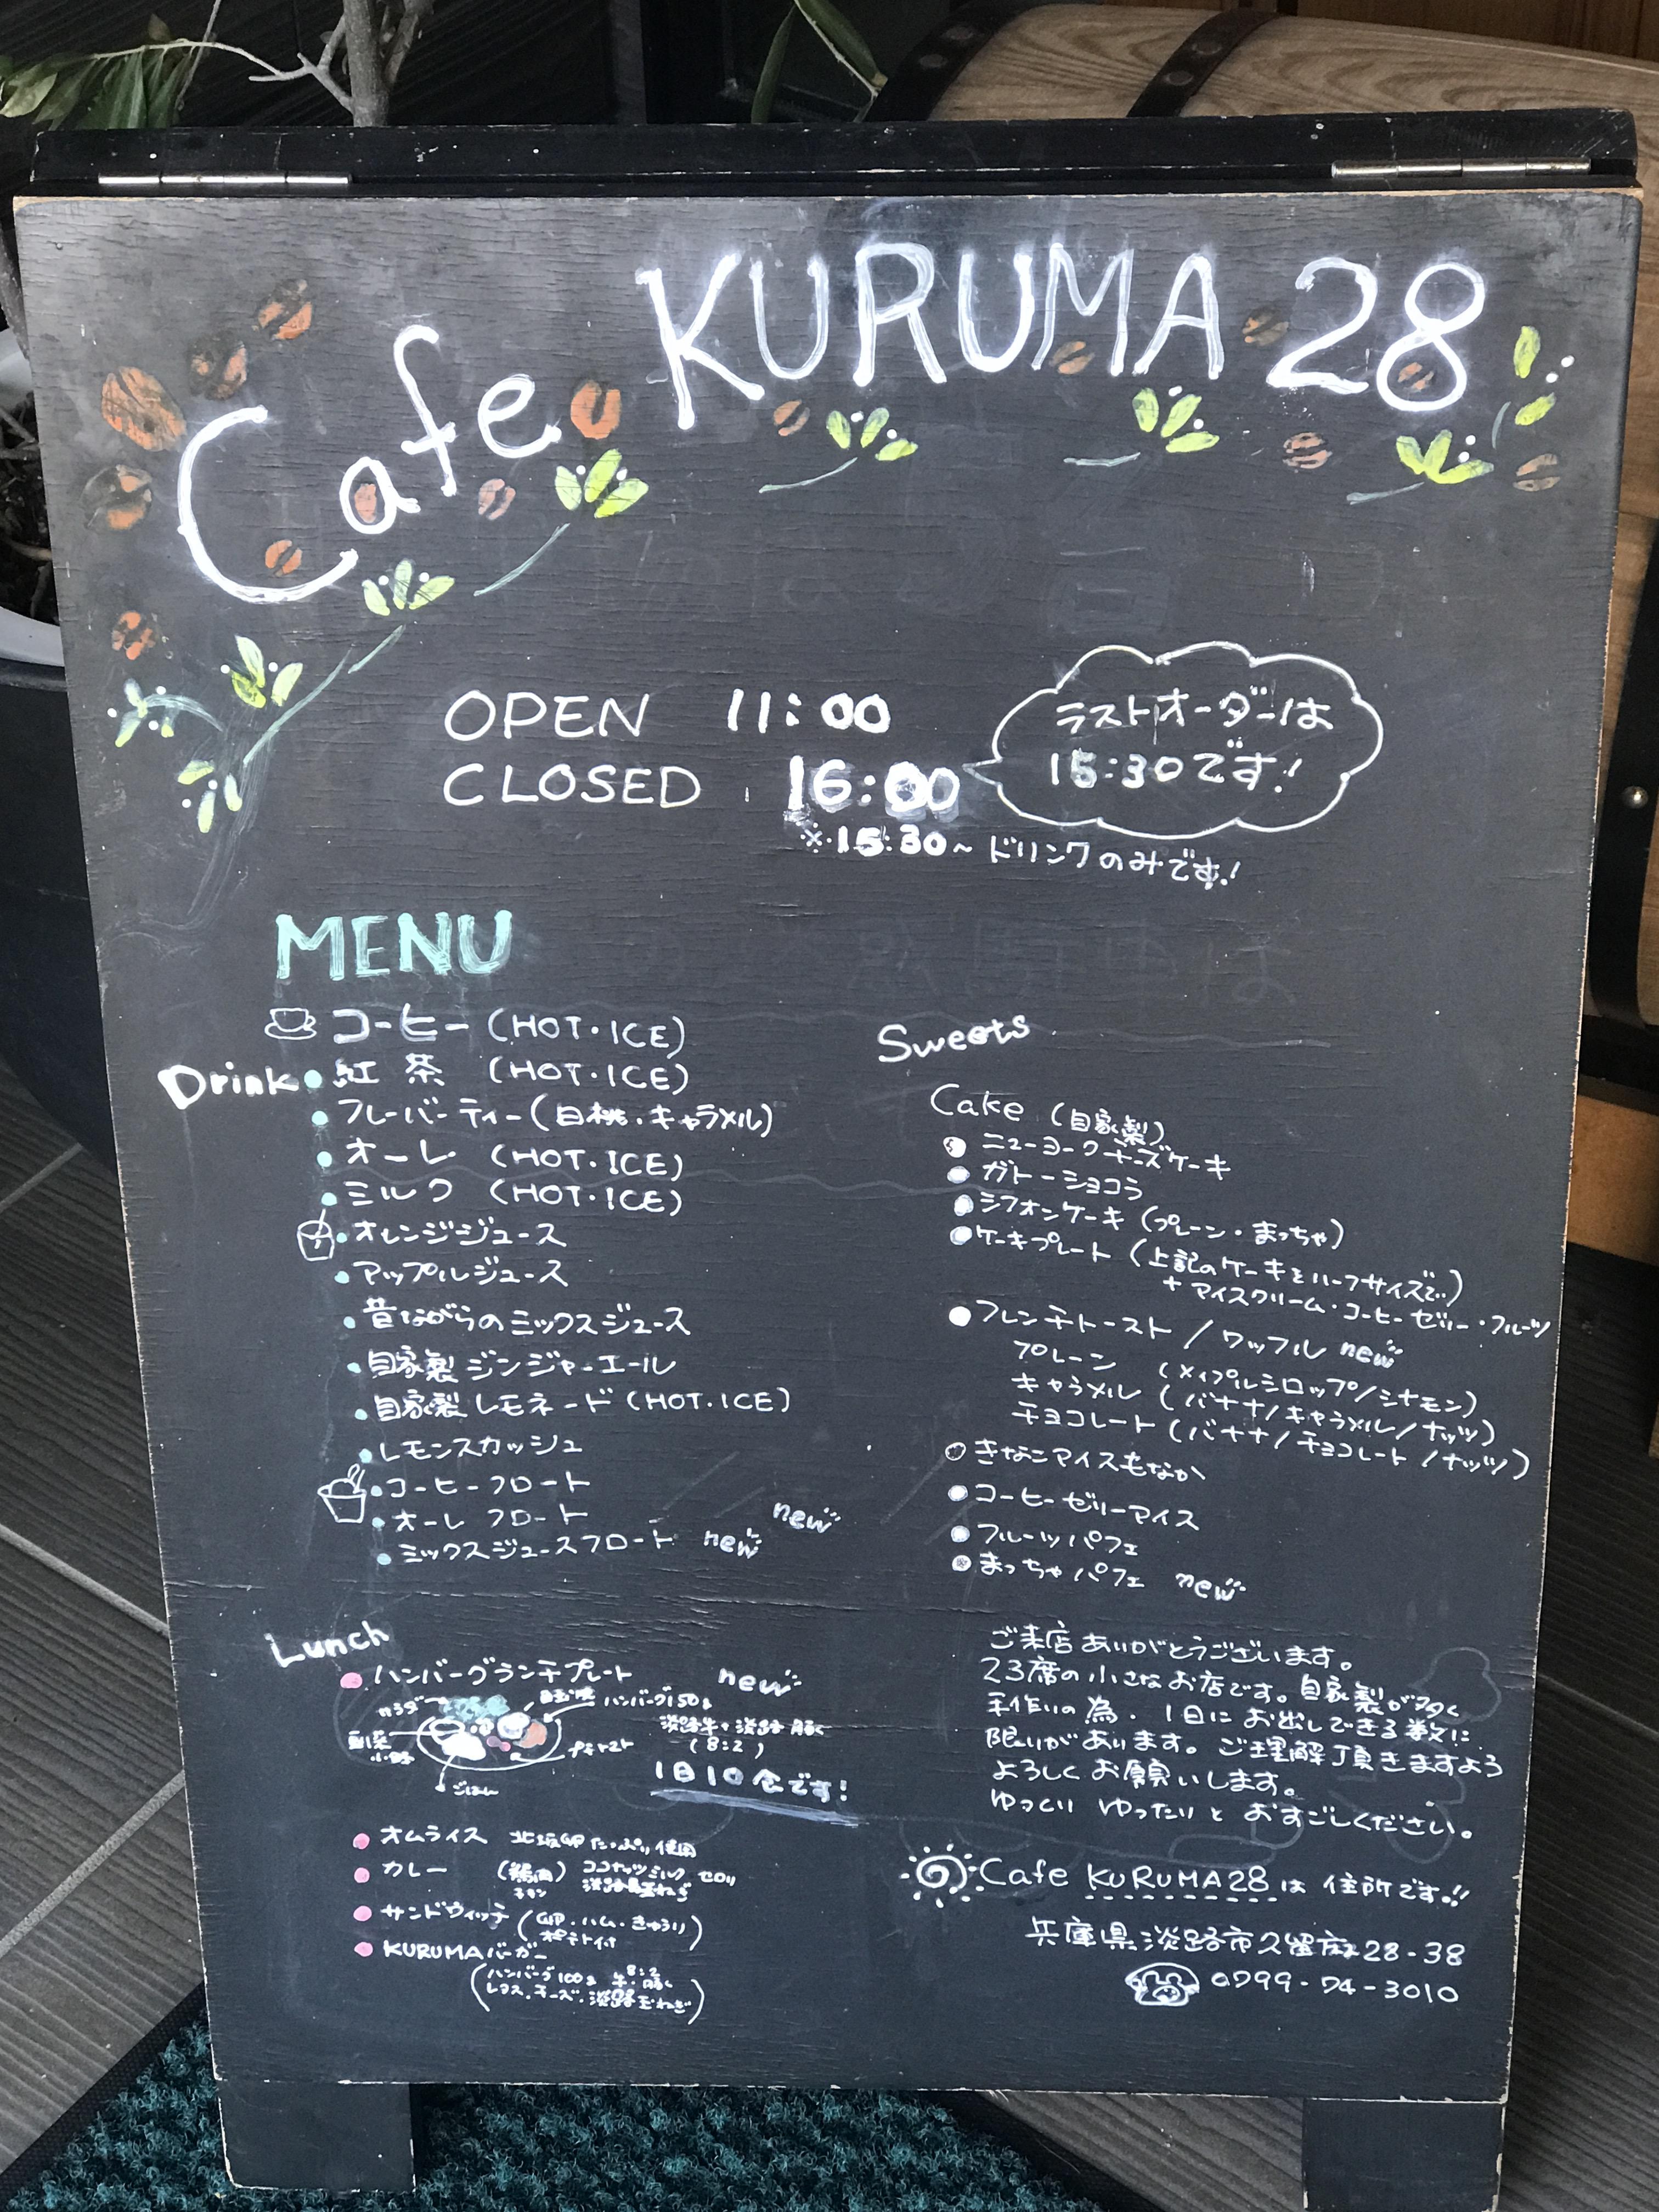 Cafe KURUMA 28
OPEN 11:00
CLOSED 16:00
ラストオーダーは
15:30です!
※15:30~ドリンクのみです!
MENU
コーヒー (HOT・ICE)
Drink
紅茶 (HOT・ICE)
フレーバーティー (白桃・キャラメル)
オーレ (HOT・ICE)
ミルク (HOT・ICE)
オレンジジュース
アップルジュース
昔ながらのミックスジュース
自家製ジンジャーエール
自家製レモネード (HOT・ICE)
レモンスカッシュ
コーヒーフロート
オーレフロート new
ミックスジュースフロート new
Sweets
Cake (自家製)
ニューヨークチーズケーキ
ガトーショコラ
シフォンケーキ (プレーン・まっちゃ)
ケーキプレート (上記のケーキをハーフサイズで)
+アイスクリーム・コーヒーゼリー・フルーツ
フレンチトースト / ワッフル new
プレーン (メイプルシロップ/シナモン)
キャラメル (バナナ/キャラメル/ナッツ)
チョコレート (バナナ/チョコレート/ナッツ)
きなこアイスもなか
コーヒーゼリーアイス
フルーツパフェ
まっちゃパフェ new
Lunch
ハンバーグランチプレート new
サラダ
ハンバーグ150g
淡路牛+淡路豚
(8:2)
副菜
ポテト
ごはん
1日10食です!
オムライス 北坂卵たっぷり使用
カレー (鶏肉) ココナッツミルク セロリ
チキン 淡路島玉ねぎ
サンドウィッチ (卵・ハム・きゅうり)
ポテト付
KURUMAバーガー
(ハンバーグ100g 牛・豚 8:2
レタス・チーズ・淡路玉ねぎ)
ご来店ありがとうございます。
23席の小さなお店です。自家製が多く
手作りの為、1日にお出しできる数に
限りがあります。ご理解頂きますよう
よろしくお願いします。
ゆっくり ゆったりと おすごしください。
Cafe KURUMA28は 住所です!!
兵庫県淡路市久留麻28-38
0799-74-3010